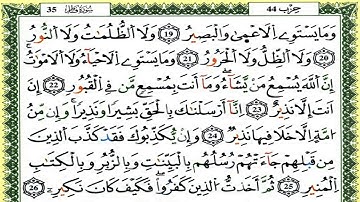 35 سورة فاطر حزب 44
وَمَا يَسْتَوِے اِ۬لَاعْم۪يٰ وَالْبَصِيرُ 19 وَلَا اَ۬لظُّلُمَٰتُ وَلَا اَ۬لنُّورُ
20 وَلَا اَ۬لظِّلُّ وَلَا اَ۬لْحَرُورُ 21 وَمَا يَسْتَوِے اِ۬لَاحْيَآءُ وَلَا اَ۬لَامْوَٰتُ
إِنَّ اَ۬للَّهَ يُسْمِعُ مَنْ يَّشَآءُ وَمَآ أَنتَ بِمُسْمِعٍ مَّن فِے اِ۬لْقُبُورِ 22 إِنَ
اَنتَ إِلَّا نَذِيرٌ 23 اِنَّآ أَرْسَلْنَٰكَ بِالْحَقِّ بَشِيراً وَنَذِيراً وَإِن مِّنُ
ا۟مَّةٍ اِلَّا خَلَا فِيهَا نَذِيرٌ 24 وَإِنْ يُّكَذِّبُوكَ فَقَدْ كَذَّبَ اَ۬لذِينَ
مِن قَبْلِهِمْ جَآءَتْهُمْ رُسُلُهُم بِالْبَيِّنَٰتِ وَبِالزُّبُرِ وَبِالْكِتَٰبِ
اِ۬لْمُنِيرِ 25 ثُمَّ أَخَذتُّ اُ۬لذِينَ كَفَرُوا۟ فَكَيْفَ كَانَ نَكِيرِۦ 26